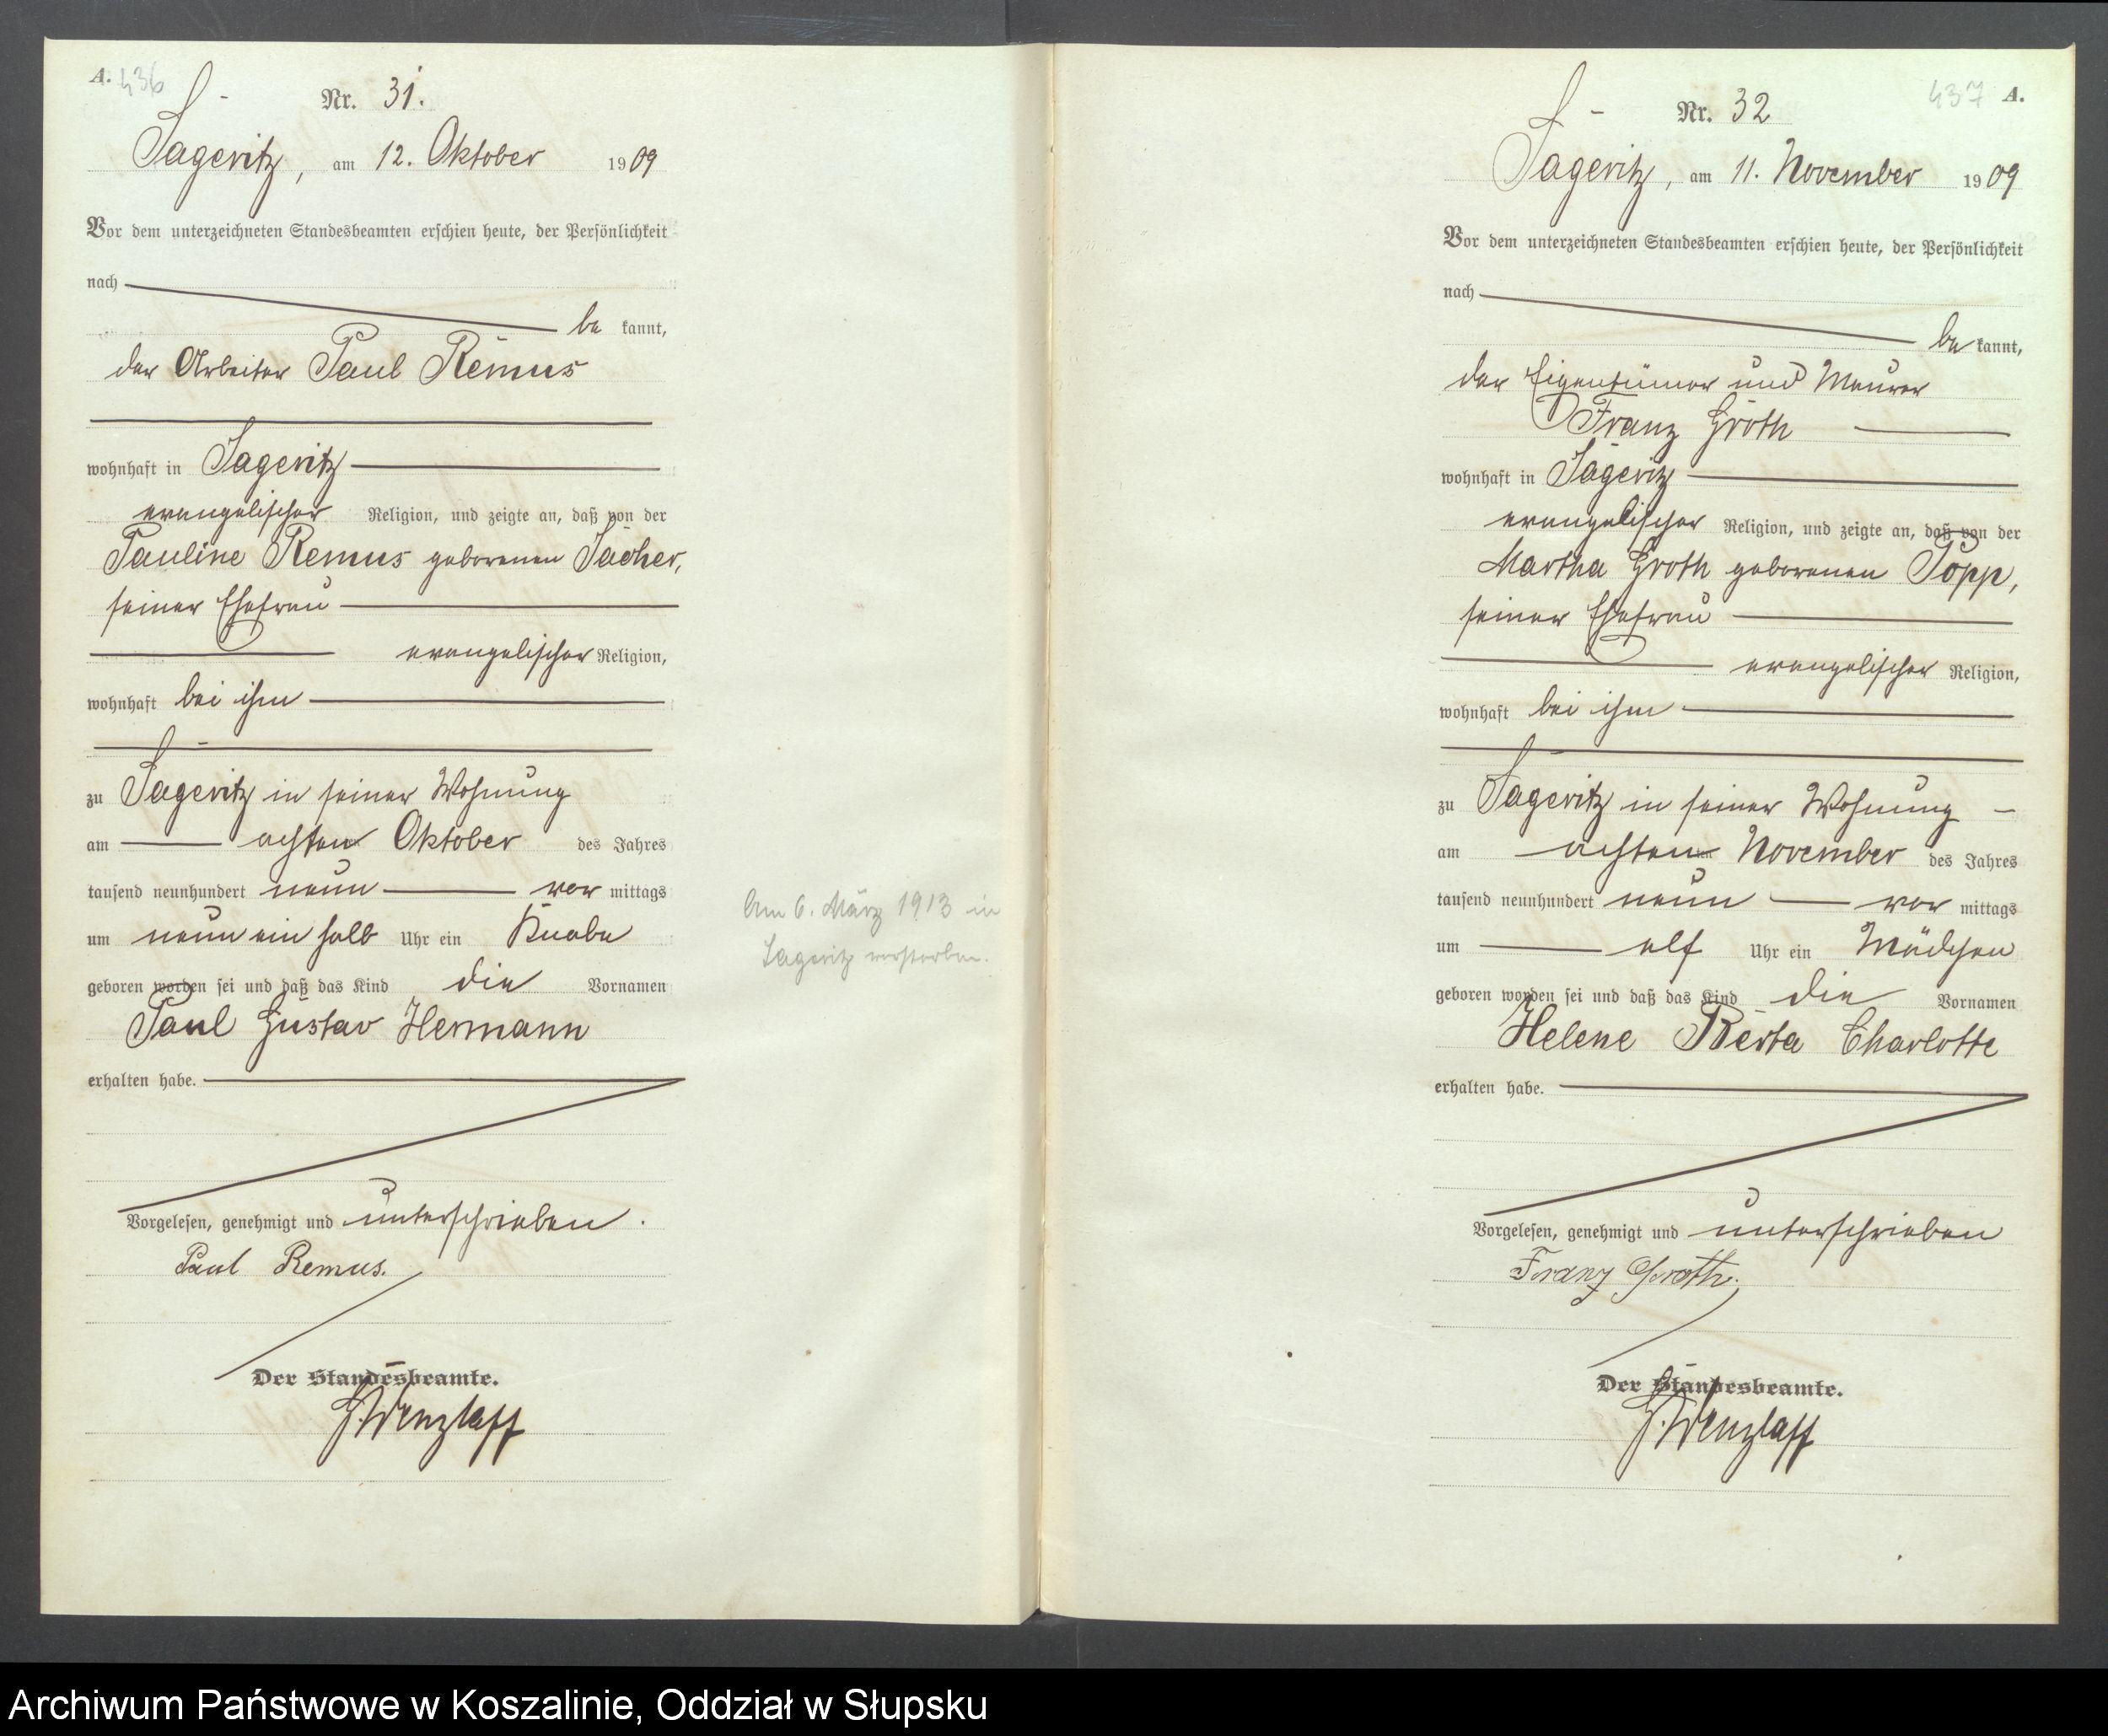 A. 436
Nr. 31.
Sageritz, am 12. Oktober 1909
Vor dem unterzeichneten Standesbeamten erschien heute, der Persönlichkeit
nach
be kannt,
der Arbeiter Paul Remus
wohnhaft in Sageritz
evangelischer Religion, und zeigte an, daß von der
Pauline Remus geborenen Sacher,
seiner Ehefrau
evangelischer Religion,
wohnhaft bei ihm
zu Sageritz in seiner Wohnung
am achten Oktober des Jahres
tausend neunhundert neun vor mittags
um neun ein halb Uhr ein Knabe
geboren worden sei und daß das Kind die Vornamen
Paul Gustav Hermann
erhalten habe.
Vorgelesen, genehmigt und unterschrieben.
Paul Remus.
Der Standesbeamte.
G. Wenzlaff
Am 6. März 1913 in
Sageritz verstorben.
437 A.
Nr. 32
Sageritz, am 11. November 1909
Vor dem unterzeichneten Standesbeamten erschien heute, der Persönlichkeit
nach
be kannt,
der Eigentümer und Maurer
Franz Groth
wohnhaft in Sageritz
evangelischer Religion, und zeigte an, daß von der
Martha Groth geborenen Popp,
seiner Ehefrau
evangelischer Religion,
wohnhaft bei ihm
zu Sageritz in seiner Wohnung
am achten November des Jahres
tausend neunhundert neun vor mittags
um elf Uhr ein Mädchen
geboren worden sei und daß das Kind die Vornamen
Helene Berta Charlotte
erhalten habe.
Vorgelesen, genehmigt und unterschrieben
Franz Groth.
Der Standesbeamte.
G. Wenzlaff
Archiwum Państwowe w Koszalinie, Oddział w Słupsku